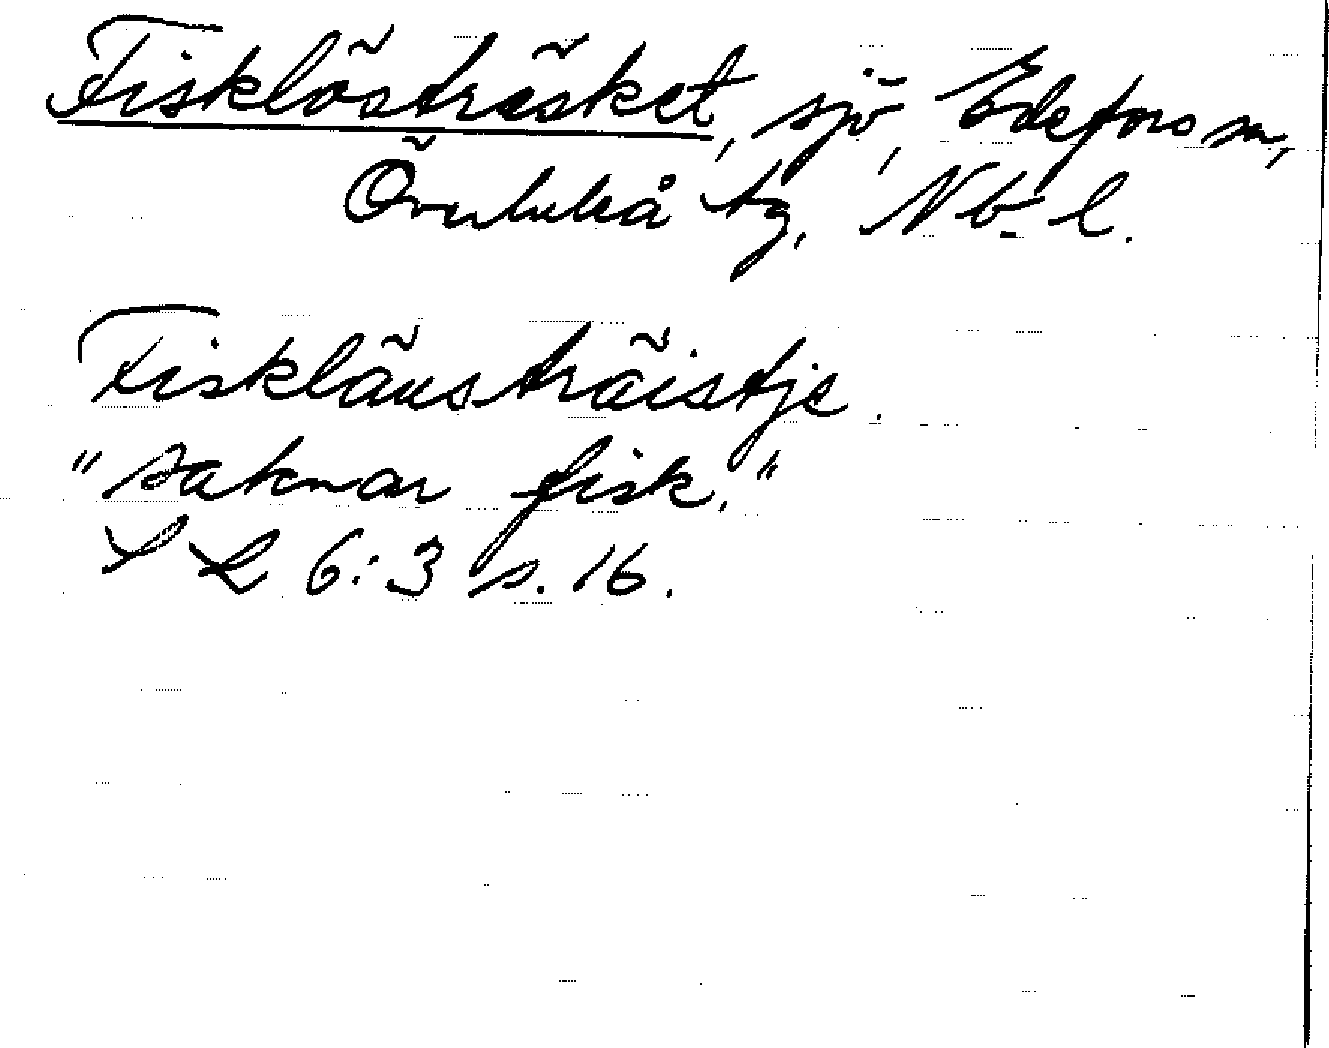 Fisklösträsket, sjö, Edefors sn,
Överluleå tg, Nb. l.
Fiskläusträistje.
"saknar fisk."
SL 6:3 s. 16.